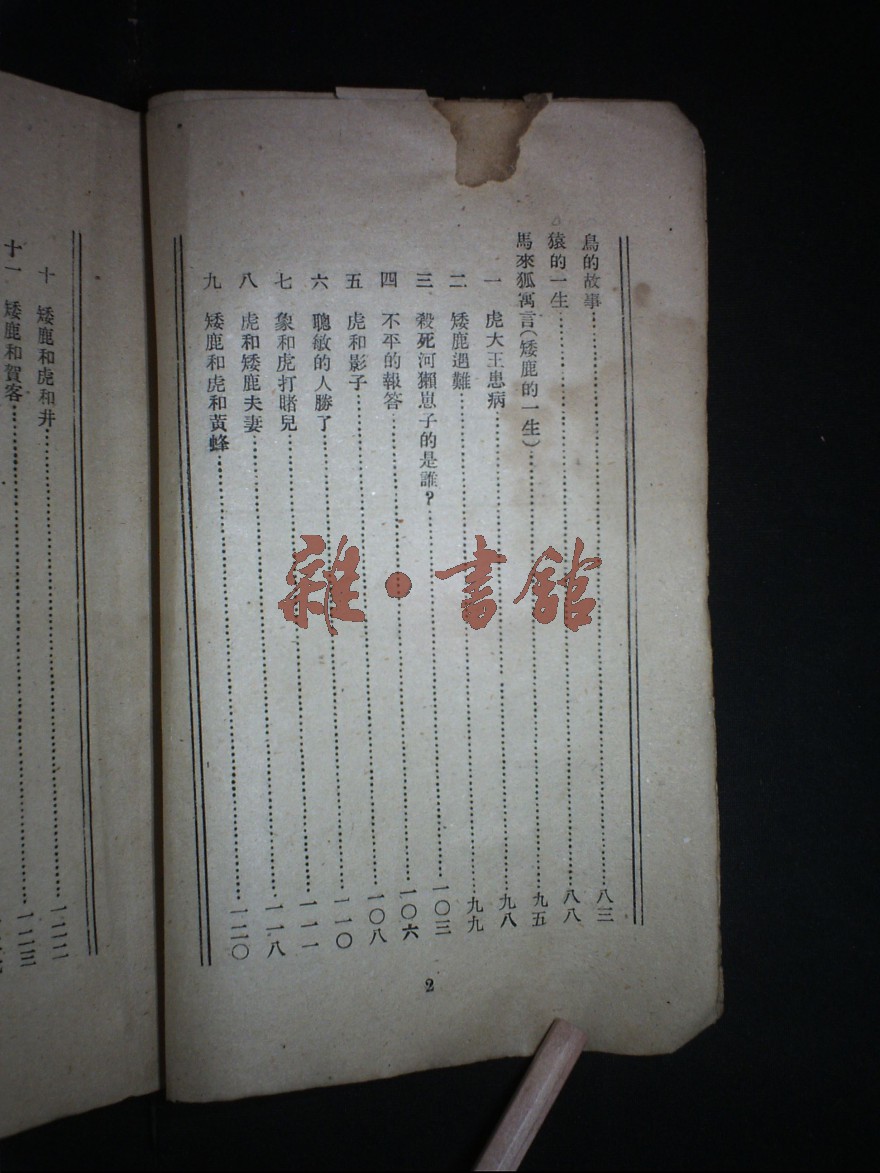 鳥的故事……八三
猿的一生……八八
馬來狐寓言(矮鹿的一生)……九五
一 虎大王患病……九八
二 矮鹿遇難……九九
三 殺死河獺崽子的是誰?……一〇三
四 不平的報答……一〇六
五 虎和影子……一〇八
六 聰敏的人勝了……一一〇
七 象和虎打賭兒……一一一
八 虎和矮鹿夫妻……一一八
九 矮鹿和虎和黃蜂……一二〇
2
十 矮鹿和虎和井……一二二
十一 矮鹿和賀客……一二三
雜·書館